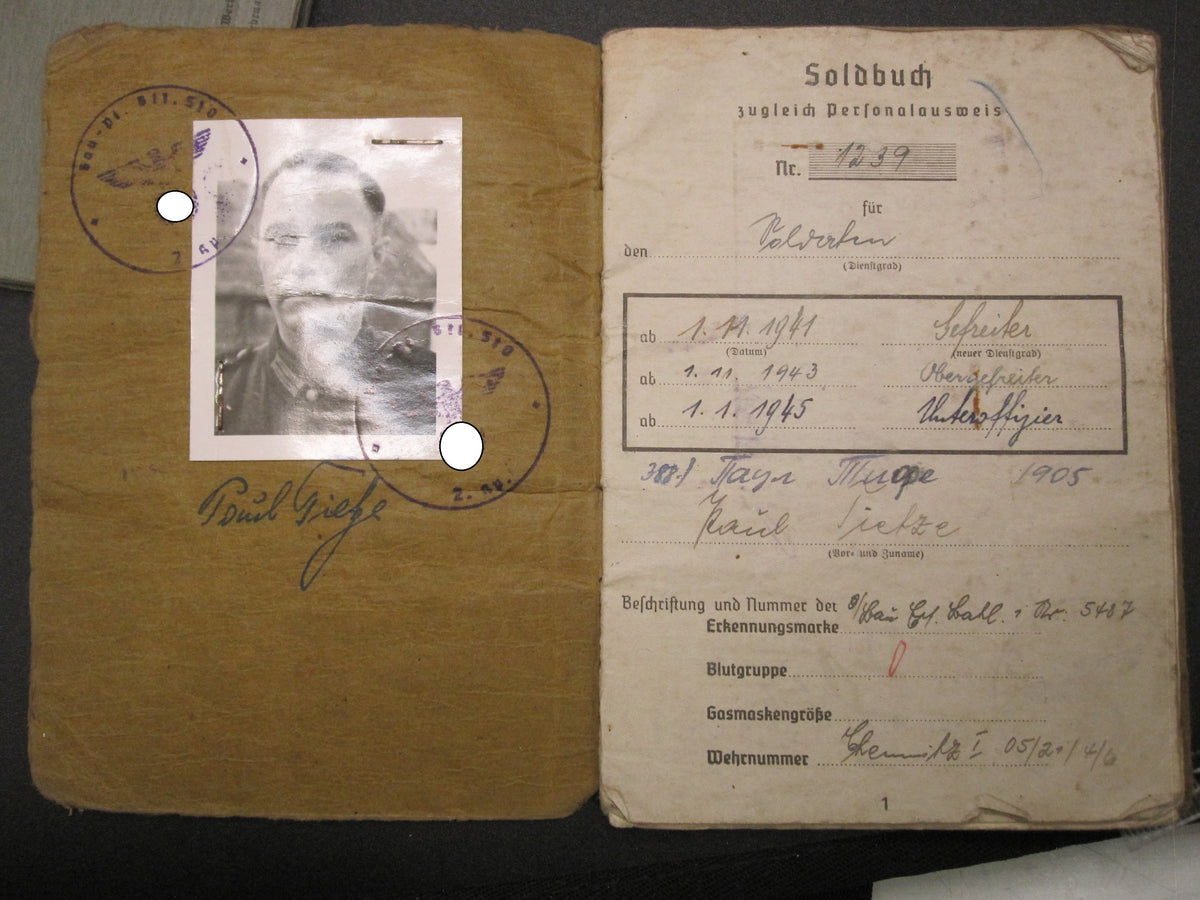 Bau-Pi. Btl. 510
2. Kp.
Btl. 510
2. Kp.
Paul Tietze
Soldbuch
zugleich Personalausweis
Nr. 1239
für
den Soldaten
(Dienstgrad)
ab 1. 11. 1941 Gefreiter
(Datum) (neuer Dienstgrad)
ab 1. 11. 1943 Obergefreiter
ab 1. 1. 1945 Unteroffizier
Паул 1905
Paul Tietze
(Vor- und Zuname)
Beschriftung und Nummer der
Erkennungsmarke Nr. 5487
Blutgruppe 0
Gasmaskengröße
Wehrnummer Chemnitz I 05/21/4/6
1